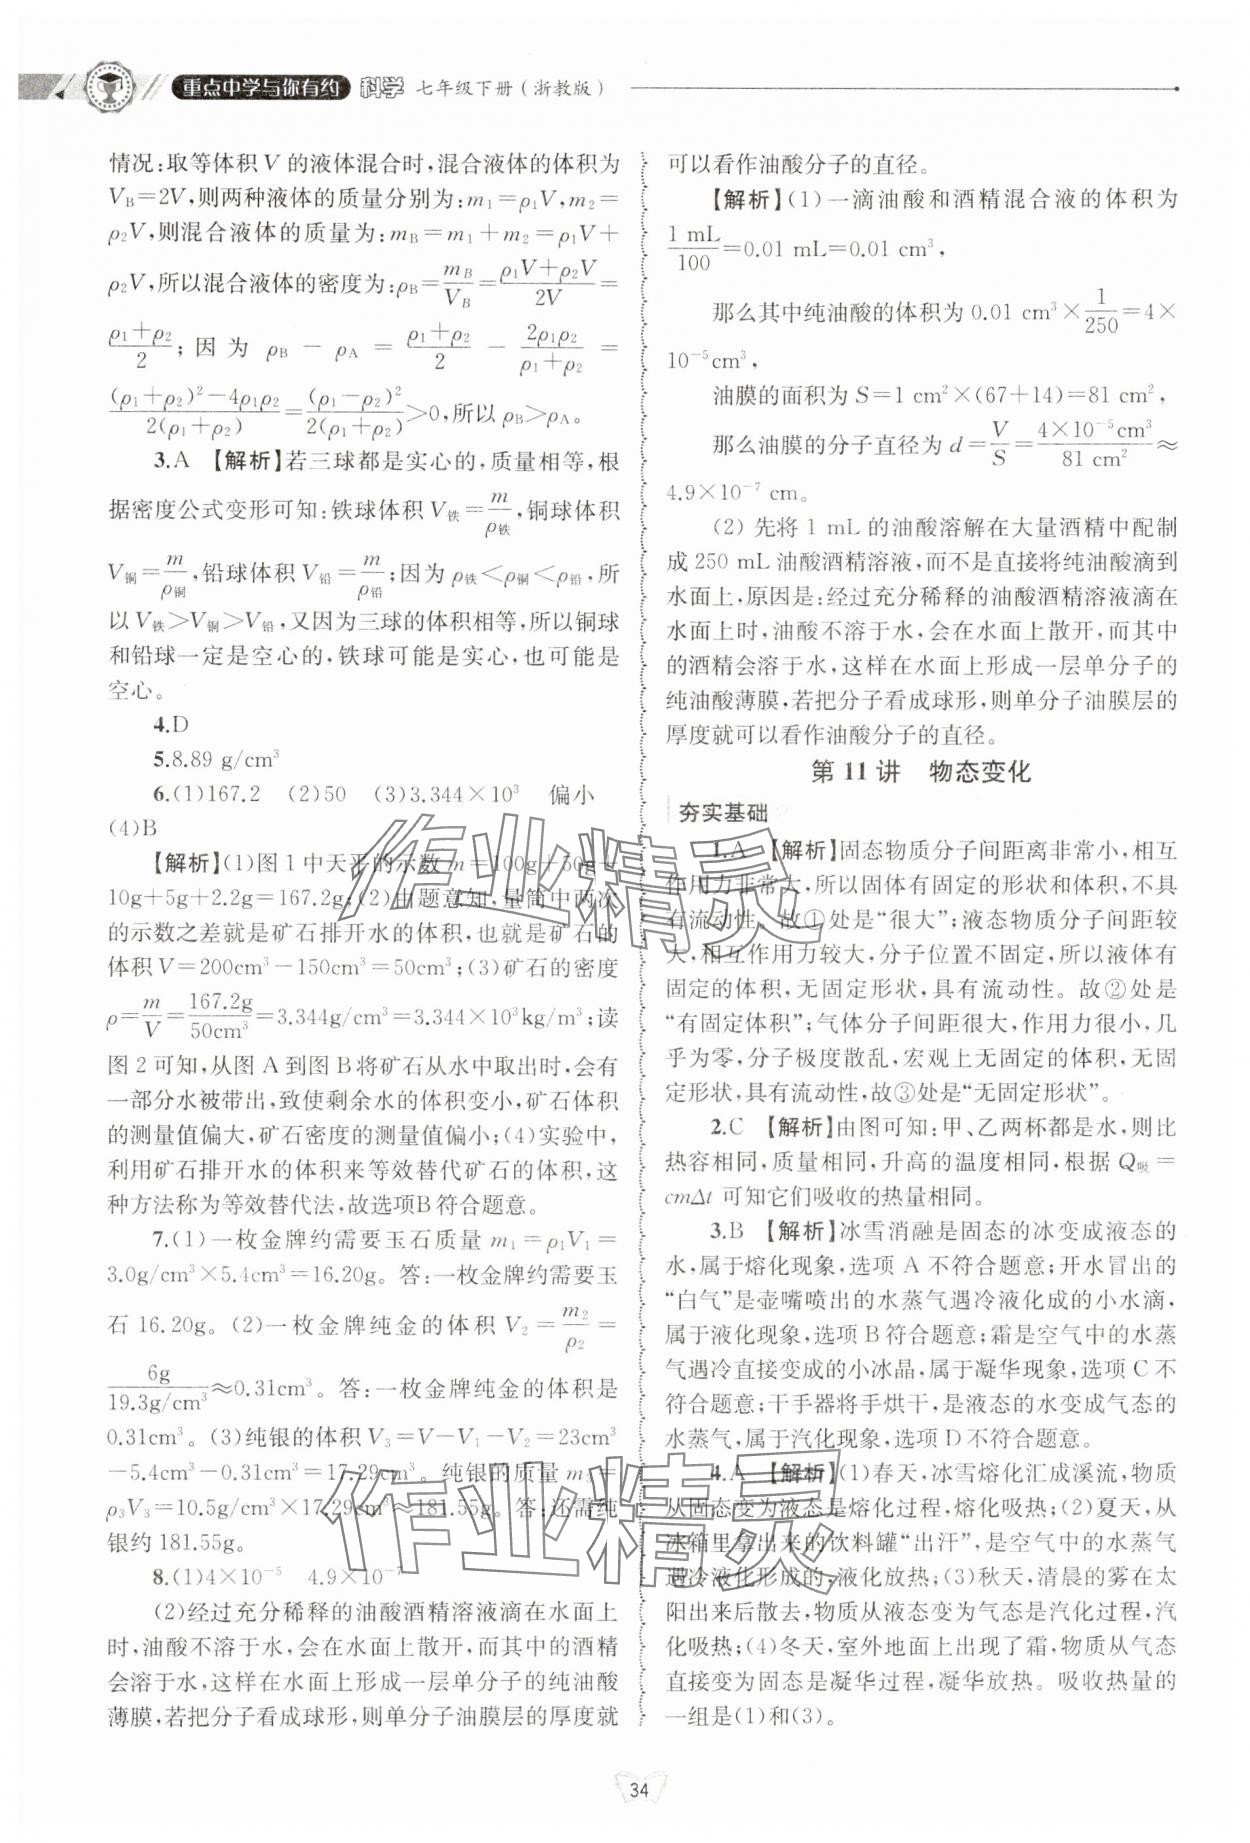 重点中学与你有约 科学 七年级下册（浙教版）
情况：取等体积 V 的液体混合时，混合液体的体积为
V_B＝2V，则两种液体的质量分别为：m₁＝ρ₁V，m₂＝
ρ₂V，则混合液体的质量为：m_B＝m₁＋m₂＝ρ₁V＋
ρ₂V，所以混合液体的密度为：ρ_B＝m_B/V_B＝(ρ₁V＋ρ₂V)/2V＝
(ρ₁＋ρ₂)/2；因为 ρ_B－ρ_A＝(ρ₁＋ρ₂)/2－2ρ₁ρ₂/(ρ₁＋ρ₂)＝
[(ρ₁＋ρ₂)²－4ρ₁ρ₂]/2(ρ₁＋ρ₂)＝(ρ₁－ρ₂)²/2(ρ₁＋ρ₂)＞0，所以 ρ_B＞ρ_A。
3.A 【解析】若三球都是实心的，质量相等，根
据密度公式变形可知：铁球体积 V铁＝m/ρ铁，铜球体积
V铜＝m/ρ铜，铅球体积 V铅＝m/ρ铅；因为 ρ铁＜ρ铜＜ρ铅，所
以 V铁＞V铜＞V铅，又因为三球的体积相等，所以铜球
和铅球一定是空心的，铁球可能是实心，也可能是
空心。
4.D
5.8.89 g/cm³
6.(1)167.2 (2)50 (3)3.344×10³ 偏小
(4)B
【解析】(1)图 1 中天平的示数 m＝100g＋50g＋
10g＋5g＋2.2g＝167.2g；(2)由题意知，量筒中两次
的示数之差就是矿石排开水的体积，也就是矿石的
体积 V＝200cm³－150cm³＝50cm³；(3)矿石的密度
ρ＝m/V＝167.2g/50cm³＝3.344g/cm³＝3.344×10³kg/m³；读
图 2 可知，从图 A 到图 B 将矿石从水中取出时，会有
一部分水被带出，致使剩余水的体积变小，矿石体积
的测量值偏大，矿石密度的测量值偏小；(4)实验中，
利用矿石排开水的体积来等效替代矿石的体积，这
种方法称为等效替代法，故选项B符合题意。
7.(1)一枚金牌约需要玉石质量 m₁＝ρ₁V₁＝
3.0g/cm³×5.4cm³＝16.20g。答：一枚金牌约需要玉
石 16.20g。(2)一枚金牌纯金的体积 V₂＝m₂/ρ₂＝
6g/19.3g/cm³≈0.31cm³。答：一枚金牌纯金的体积是
0.31cm³。(3)纯银的体积 V₃＝V－V₁－V₂＝23cm³
－5.4cm³－0.31cm³＝17.29cm³。纯银的质量 m₃＝
ρ₃V₃＝10.5g/cm³×17.29cm³≈181.55g。答：还需纯
银约 181.55g。
8.(1)4×10⁻⁵ 4.9×10⁻⁷
(2)经过充分稀释的油酸酒精溶液滴在水面上
时，油酸不溶于水，会在水面上散开，而其中的酒精
会溶于水，这样在水面上形成一层单分子的纯油酸
薄膜，若把分子看成球形，则单分子油膜层的厚度就
可以看作油酸分子的直径。
【解析】(1)一滴油酸和酒精混合液的体积为
1 mL/100＝0.01 mL＝0.01 cm³，
那么其中纯油酸的体积为 0.01 cm³×1/250＝4×
10⁻⁵cm³，
油膜的面积为 S＝1 cm²×(67＋14)＝81 cm²，
那么油膜的分子直径为 d＝V/S＝4×10⁻⁵cm³/81 cm²≈
4.9×10⁻⁷ cm。
(2) 先将 1 mL 的油酸溶解在大量酒精中配制
成 250 mL 油酸酒精溶液，而不是直接将纯油酸滴到
水面上，原因是：经过充分稀释的油酸酒精溶液滴在
水面上时，油酸不溶于水，会在水面上散开，而其中
的酒精会溶于水，这样在水面上形成一层单分子的
纯油酸薄膜，若把分子看成球形，则单分子油膜层的
厚度就可以看作油酸分子的直径。
第 11 讲 物态变化
夯实基础
1.A 【解析】固态物质分子间距离非常小，相互
作用力非常大，所以固体有固定的形状和体积，不具
有流动性。故①处是“很大”；液态物质分子间距较
大，相互作用力较大，分子位置不固定，所以液体有
固定的体积，无固定形状，具有流动性。故②处是
“有固定体积”；气体分子间距很大，作用力很小，几
乎为零，分子极度散乱，宏观上无固定的体积，无固
定形状，具有流动性，故③处是“无固定形状”。
2.C 【解析】由图可知：甲、乙两杯都是水，则比
热容相同，质量相同，升高的温度相同，根据 Q吸＝
cmΔt 可知它们吸收的热量相同。
3.B 【解析】冰雪消融是固态的冰变成液态的
水，属于熔化现象，选项 A 不符合题意；开水冒出的
“白气”是壶嘴喷出的水蒸气遇冷液化成的小水滴，
属于液化现象，选项 B 符合题意；霜是空气中的水蒸
气遇冷直接变成的小冰晶，属于凝华现象，选项 C 不
符合题意；干手器将手烘干，是液态的水变成气态的
水蒸气，属于汽化现象，选项 D 不符合题意。
4.A 【解析】(1)春天，冰雪熔化汇成溪流，物质
从固态变为液态是熔化过程，熔化吸热；(2)夏天，从
冰箱里拿出来的饮料罐“出汗”，是空气中的水蒸气
遇冷液化形成的，液化放热；(3)秋天，清晨的雾在太
阳出来后散去，物质从液态变为气态是汽化过程，汽
化吸热；(4)冬天，室外地面上出现了霜，物质从气态
直接变为固态是凝华过程，凝华放热。吸收热量的
一组是(1)和(3)。
作业精灵
作业精灵
34